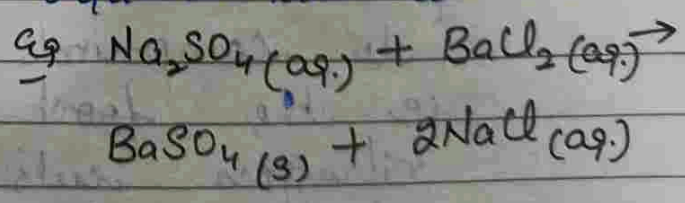 eg Na₂SO₄ (aq.) + BaCl₂ (aq.) →
BaSO₄ (s) + 2NaCl (aq.)